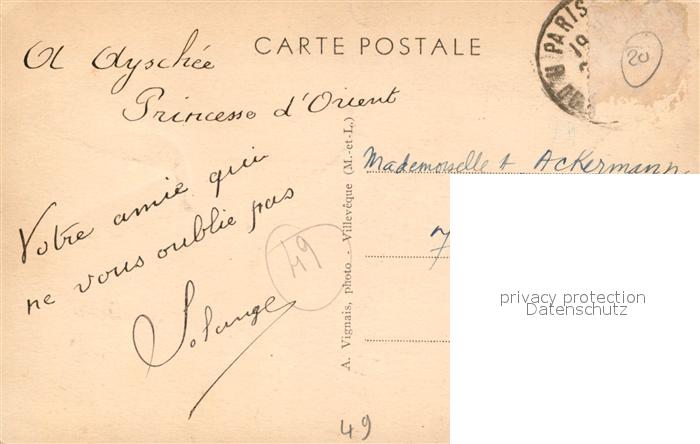 A Ayschée
Princesse d'Orient
Votre amie qui
ne vous oublie pas
Solange
CARTE POSTALE
A. Vignais, photo - Villevêque (M.-et-L.)
PARIS
19
20
Mademoiselle A Ackermann
7
49
49
privacy protection
Datenschutz